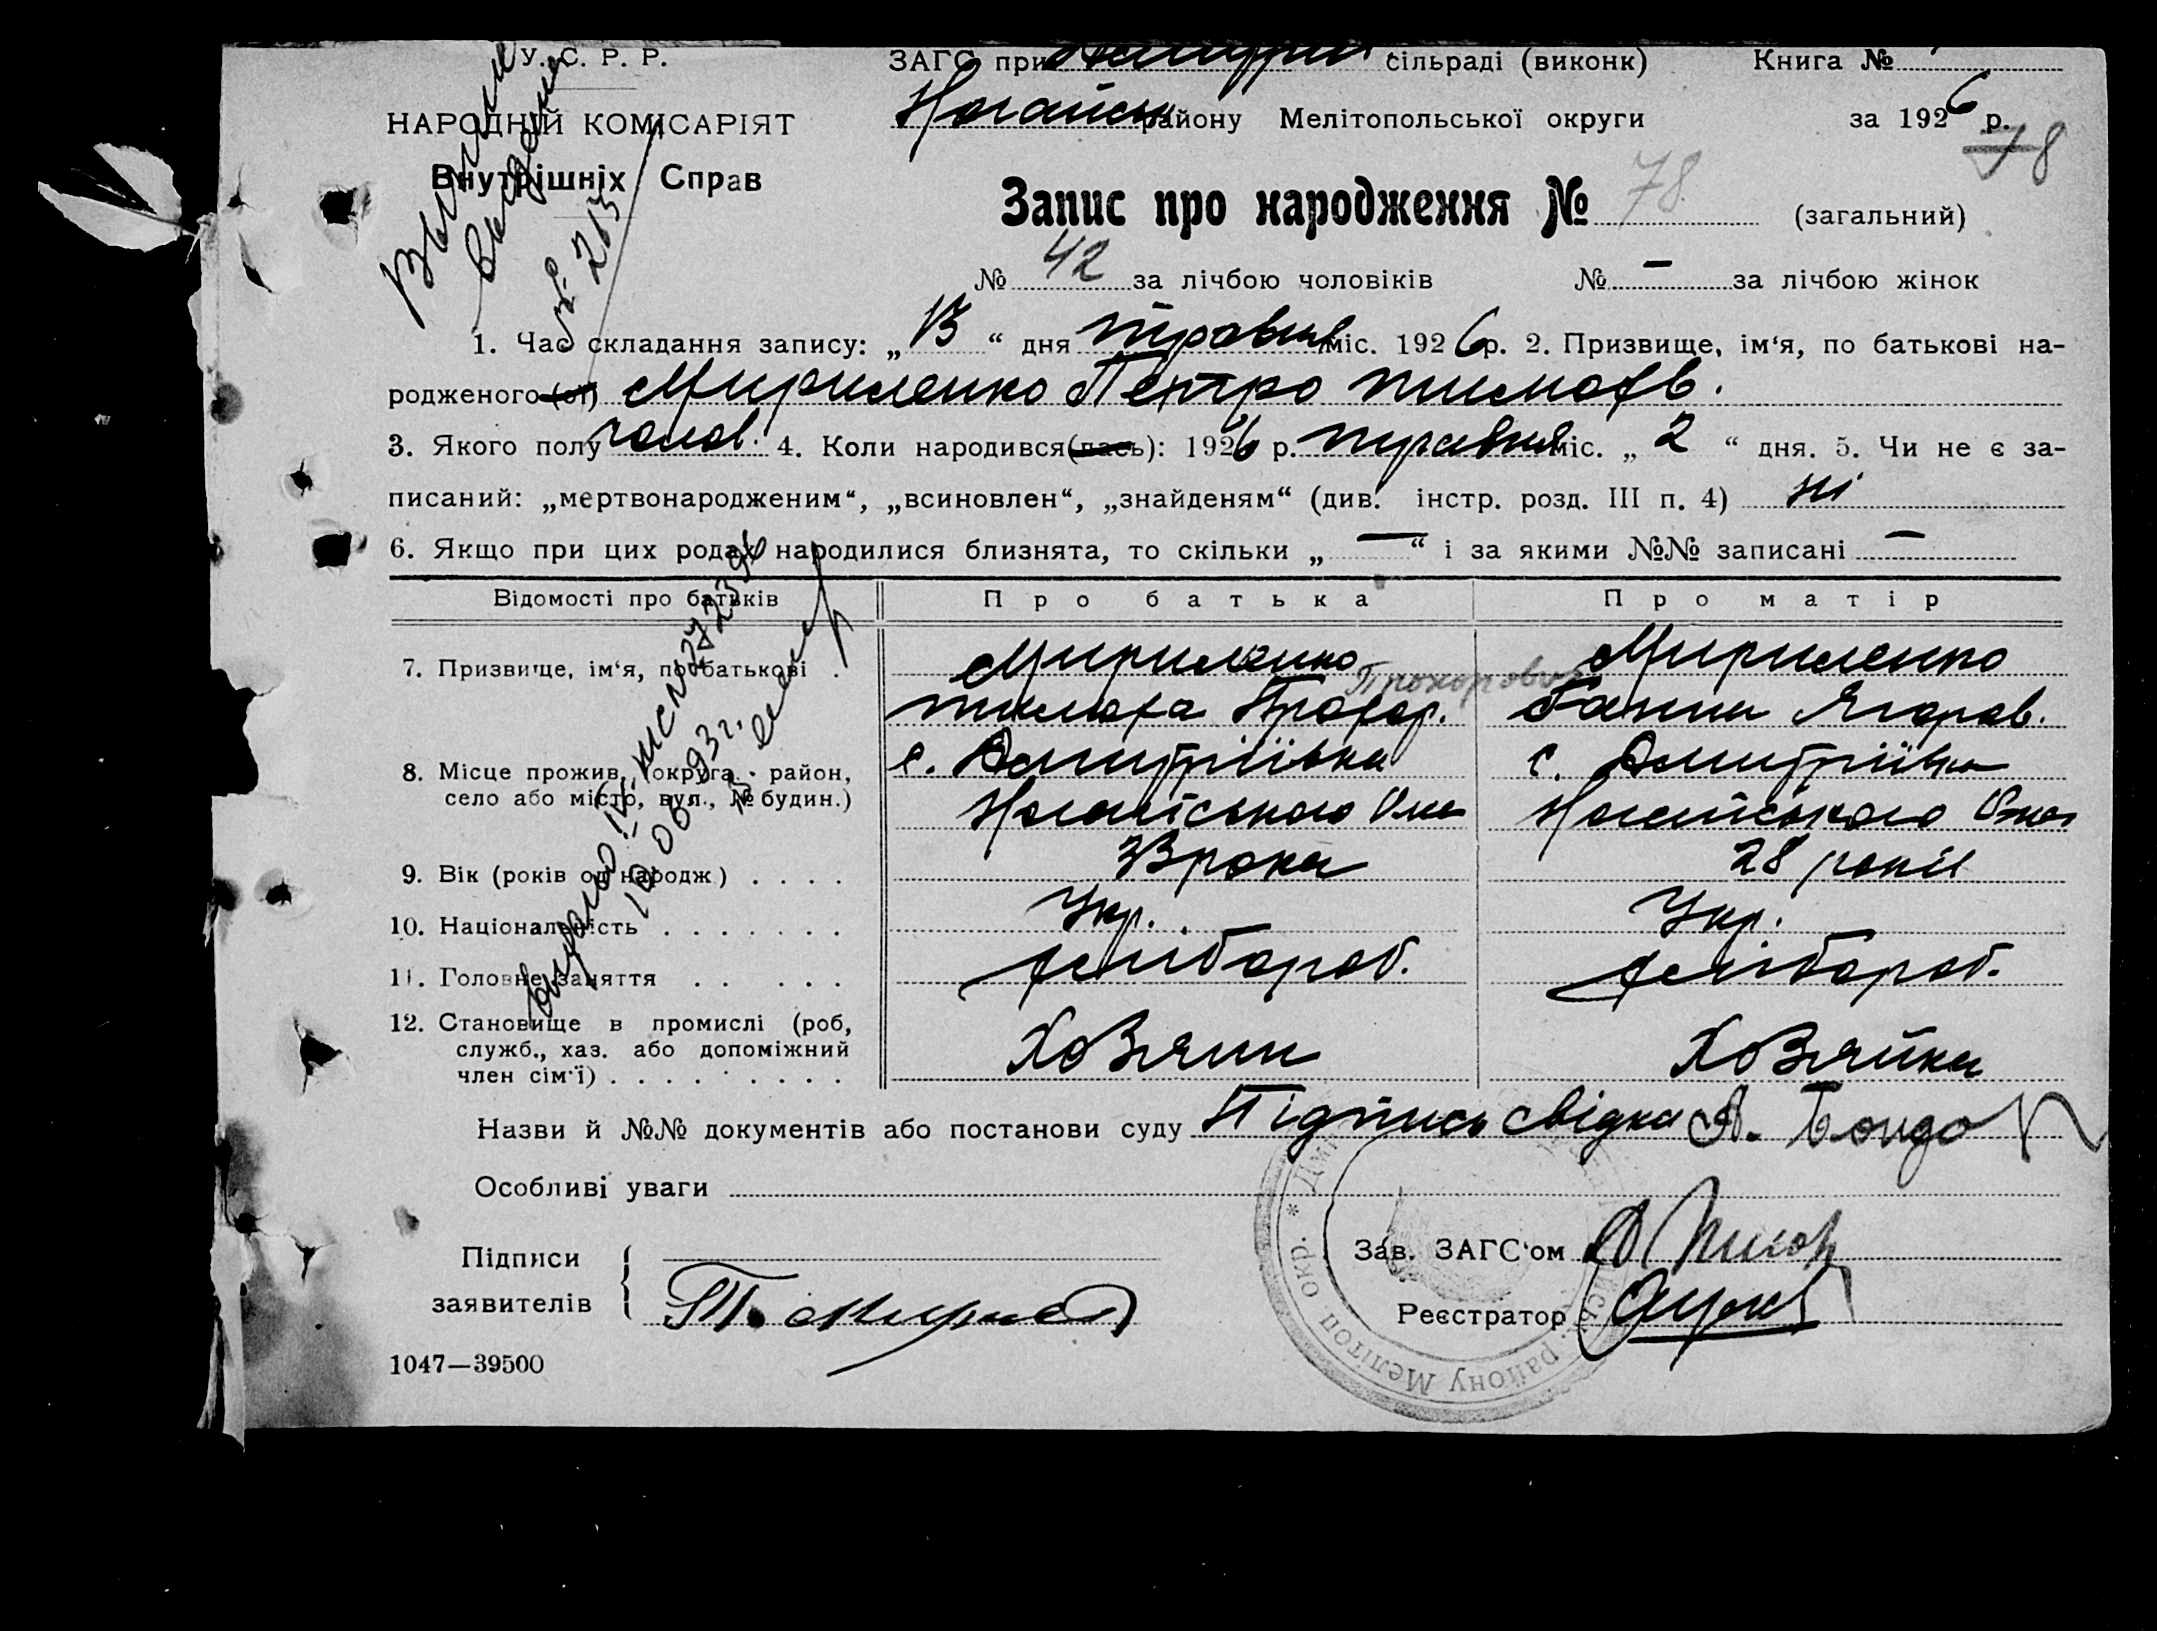 У. С. Р. Р.
НАРОДНІЙ КОМІСАРІЯТ
Внутрішніх Справ
ЗАГС при сільраді (виконк) Книга №
Ногайськ району Мелітопольської округи за 1926 р.
78
Запис про народження № 78 (загальний)
№ 42 за лічбою чоловіків № — за лічбою жінок
1. Час складання запису: „ 13 “ дня травня міс. 1926 р. 2. Призвище, ім‘я, по батькові на-
родженого (ої) Мириленко Петро Тимофів.
3. Якого полу чолов. 4. Коли народився (лась): 1926 р. травня міс. „ 2 “ дня. 5. Чи не є за-
писаний: „мертвонародженим“, „всиновлен“, „знайденям“ (див. інстр. розд. III п. 4) ні
6. Якщо при цих родах народилися близнята, то скільки „ — “ і за якими №№ записані —
Відомості про батьків Про батька Про матір
7. Призвище, ім‘я, по батькові . Мириленко Мириленко
Прохорович
Тимофа Прохор. Ганна Ягоров.
8. Місце прожив. (округа, район, с. Дмитріївка с. Дмитріївка
село або місто, вул., № будин.) Ногайського Ногайського
9. Вік (років од народж) . . . . 33 роки 28 років
10. Національність . . . . . . . Укр. Укр.
11. Головне заняття . . . . . хлібороб. хлібороб.
12. Становище в промислі (роб,
служб., хаз. або допоміжний
член сім‘ї) . . . . . . . . . Хозяин Хозяйка
Назви й №№ документів або постанови суду Підпись свідка А. Бондар
Особливі уваги
Підписи
заявителів
Зав. ЗАГС‘ом
Реєстратор
району Мелітоп окр. *
1047—39500
№ 213
10.06.93г.